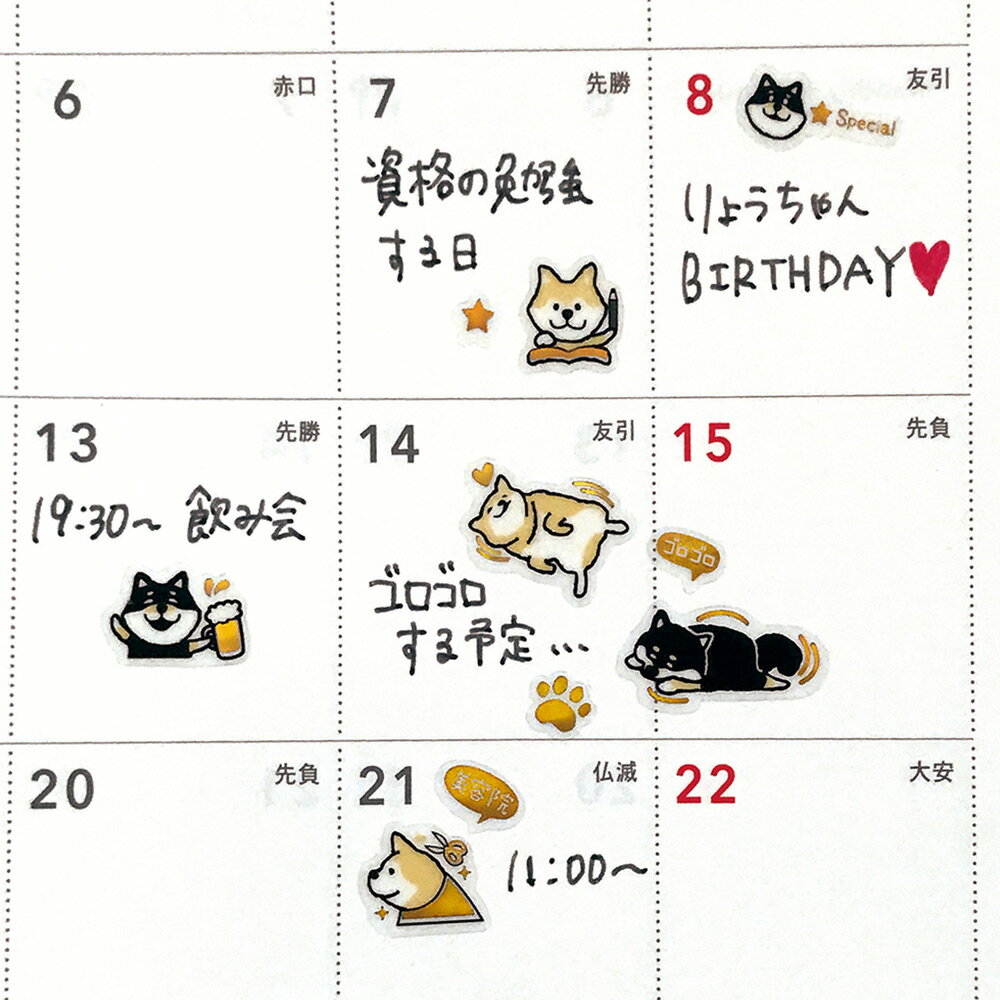 6 赤口
7 先勝
資格の勉強
する日
8 友引
Special
りょうちゃん
BIRTHDAY♥
13 先勝
19:30〜 飲み会
14 友引
ゴロゴロ
する予定...
15 先負
ゴロゴロ
20 先負
21 仏滅
美容院
11:00〜
22 大安